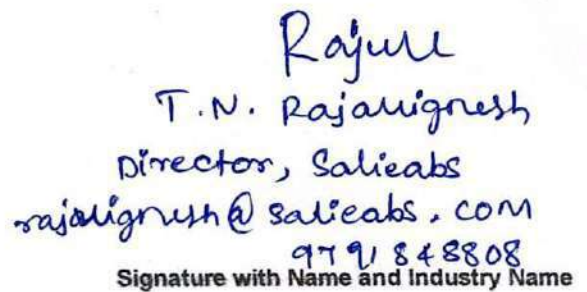 T.N. Rajavignesh
Director, Salieabs
rajavignesh@salieabs.com
9791848808
Signature with Name and Industry Name